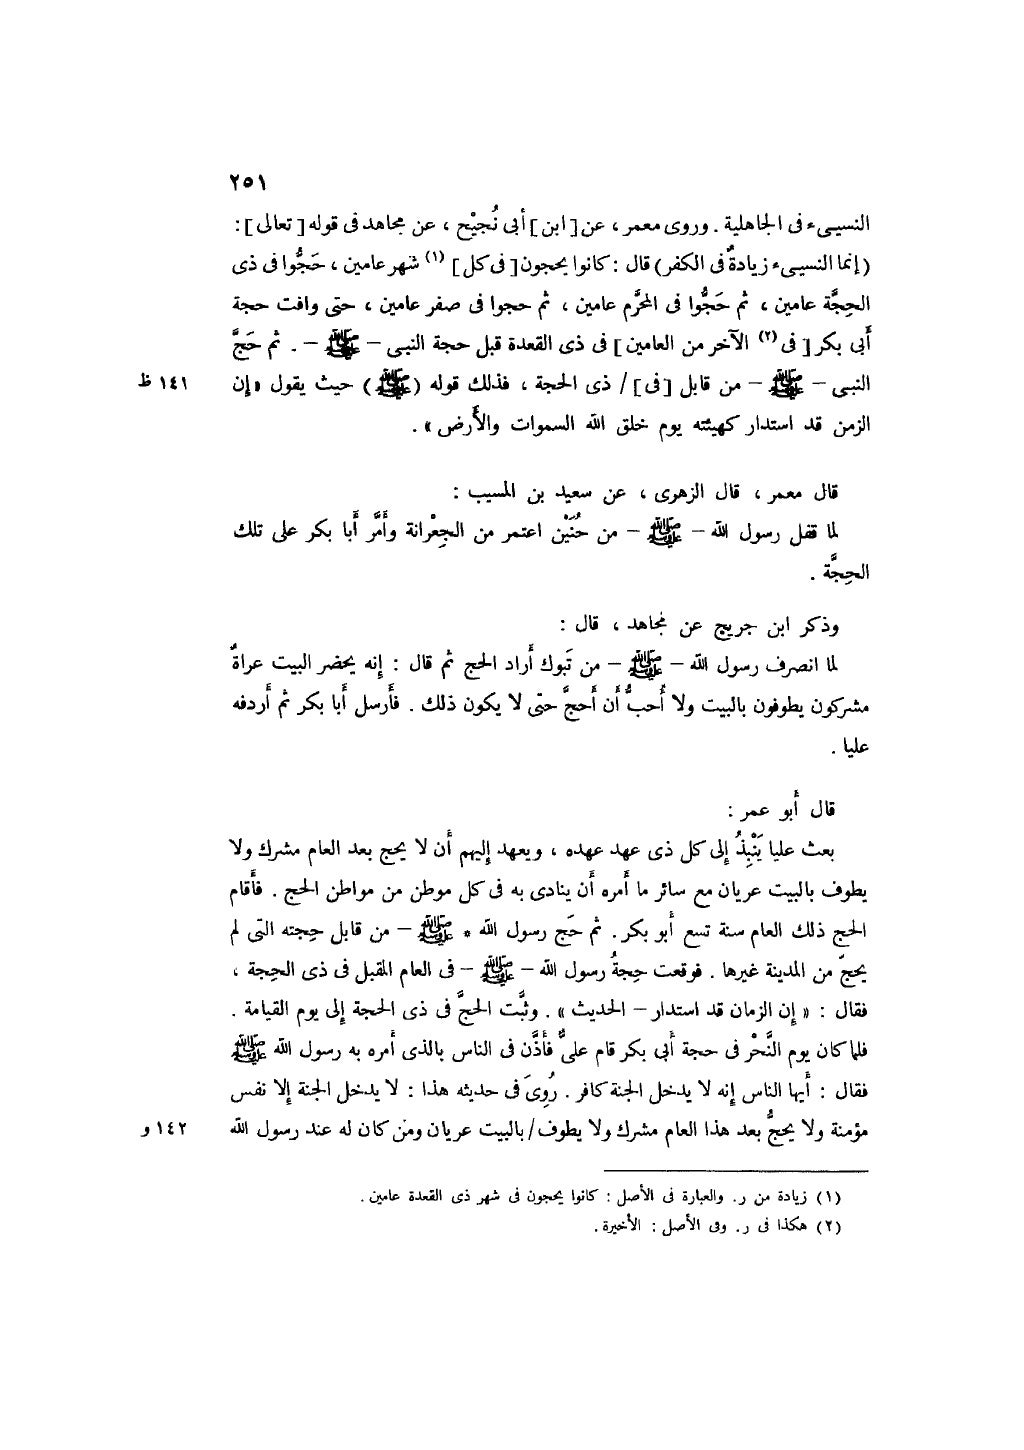 ٢٥١
النسيىء فى الجاهلية . وروى معمر ، عن [ ابن ] أبى نُجيْح ، عن مجاهد فى قوله [ تعالى ] :
( إنما النسيىء زيادةٌ فى الكفر ) قال : كانوا يحجون [ فى كل ] (١) شهر عامين ، حَجُّوا فى ذى
الحِجَّة عامين ، ثم حَجُّوا فى المحرَّم عامين ، ثم حجوا فى صفر عامين ، حتى وافت حجة
أَبى بكر [ فى (٢) الآخر من العامين ] فى ذى القعدة قبل حجة النبى – ﷺ – . ثم حَجَّ
النبى – ﷺ – من قابل [ فى ] / ذى الحجة ، فذلك قوله ( ﷺ ) حيث يقول « إن ١٤١ ظ
الزمن قد استدار كهيئته يوم خلق الله السموات والأَرض » .
قال معمر ، قال الزهرى ، عن سعيد بن المسيب :
لما قفل رسول الله – ﷺ – من حُنَيْن اعتمر من الجِعْرانة وأَمَّر أَبا بكر على تلك
الحِجَّة .
وذكر ابن جريج عن مجاهد ، قال :
لما انصرف رسول الله – ﷺ – من تَبوك أَراد الحج ثم قال : إِنه يحضر البيت عراةٌ
مشركون يطوفون بالبيت ولا أُحبُّ أَن أَحجَّ حتّى لا يكون ذلك . فأَرسل أَبا بكر ثم أَردفه
عليا .
قال أَبو عمر :
بعث عليا يَنْبِذُ إِلى كل ذى عهد عهده ، ويعهد إِليهم أَن لا يحج بعد العام مشرك ولا
يطوف بالبيت عريان مع سائر ما أَمره أَن ينادى به فى كل موطن من مواطن الحج . فأَقام
الحج ذلك العام سنة تسع أَبو بكر . ثم حَج رسول الله * ﷺ – من قابل حِجته التى لم
يحجّ من المدينة غيرها . فوقعت حِجةُ رسول الله – ﷺ – فى العام المقبل فى ذى الحِجة ،
فقال : « إِن الزمان قد استدار – الحديث » . وثبَّت الحجَّ فى ذى الحجة إِلى يوم القيامة .
فلما كان يوم النَّحْر فى حجة أَبى بكر قام علىٌّ فأَذَّن فى الناس بالذى أَمره به رسول الله ﷺ
فقال : أَيها الناس إِنه لا يدخل الجنة كافر . رُوِىَ فى حديثه هذا : لا يدخل الجنة إِلا نفس
مؤمنة ولا يحجُّ بعد هذا العام مشرك ولا يطوف / بالبيت عريان ومَن كان له عند رسول الله ١٤٢ و
(١) زيادة من ر . والعبارة فى الأصل : كانوا يحجون فى شهر ذى القعدة عامين .
(٢) هكذا فى ر . وفى الأصل : الأخيرة .